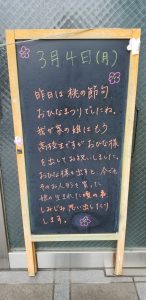 3月4日(月)
昨日は桃の節句
おひなまつりでしたね。
我が家の娘はもう
高校生ですがおひな様
を出してお祝いしました。
おひな様を出すと、今でも
そのお人形を買った
娘の生まれた頃の事
しみじみ思い出したり
します。